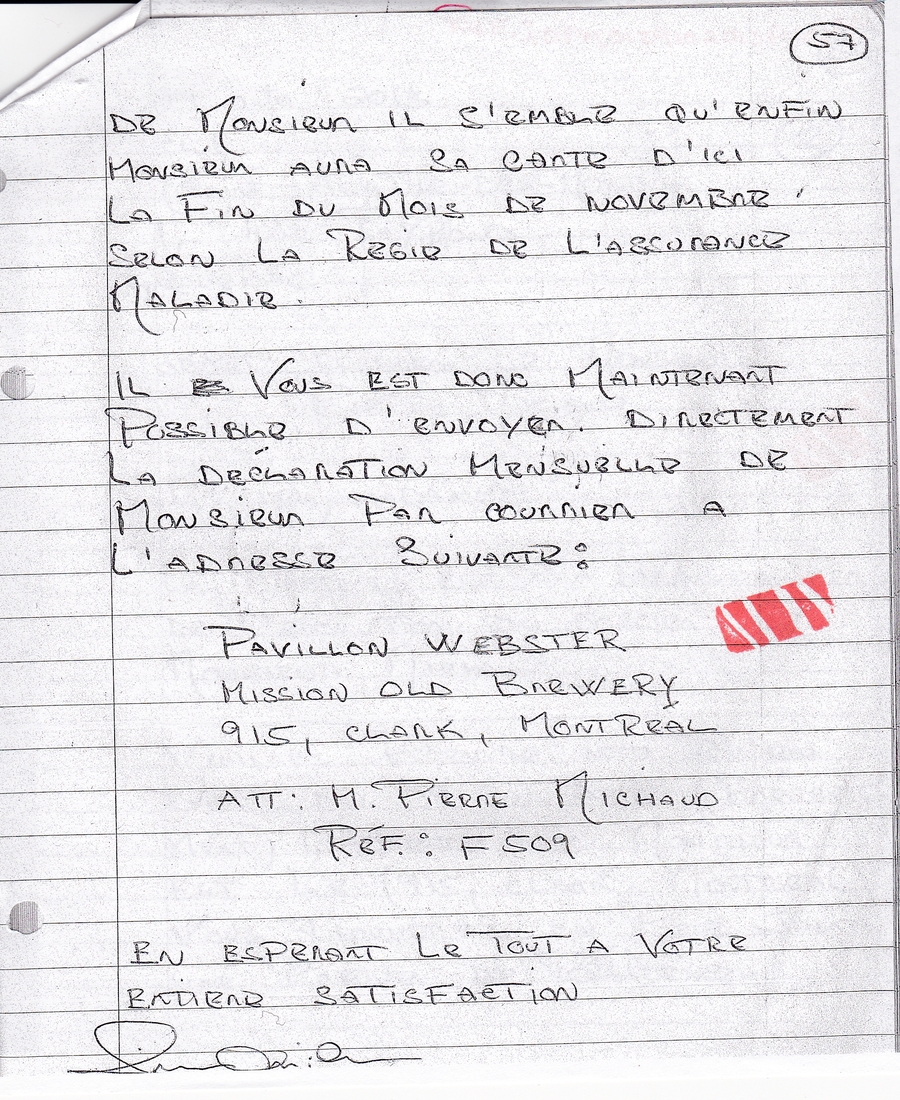 57
DE MONSIEUR IL S'EMBLE QU'ENFIN
MONSIEUR AURA SA CARTE D'ICI
LA FIN DU MOIS DE NOVEMBRE,
SELON LA REGIE DE L'ASSURANCE
MALADIE.
IL VOUS EST DONC MAINTENANT
POSSIBLE D'ENVOYER. DIRECTEMENT
LA DÉCLARATION MENSUELLE DE
MONSIEUR PAR COURRIER A
L'ADRESSE SUIVANTE:
PAVILLON WEBSTER
MISSION OLD BREWERY
915, CLARK, MONTREAL
ATT: M. PIERRE MICHAUD
RÉF.: F509
EN ESPERANT LE TOUT A VOTRE
ENTIERE SATISFACTION